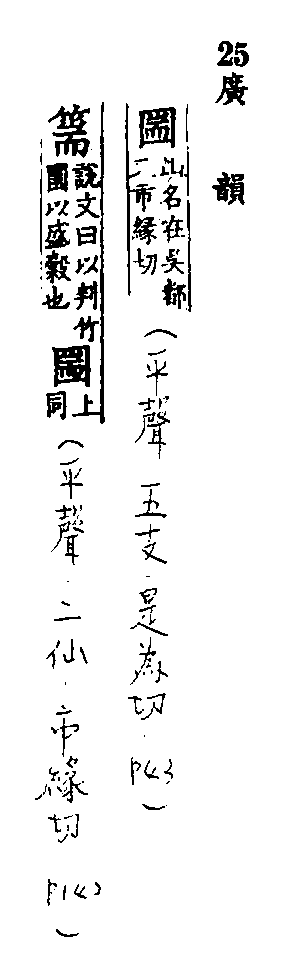 25廣韻
圌山名在吳都市緣切(平聲 五支·是為切·P43)
篅說文曰以判竹圜以盛穀也圌上同(平聲·二仙·市緣切 P142)